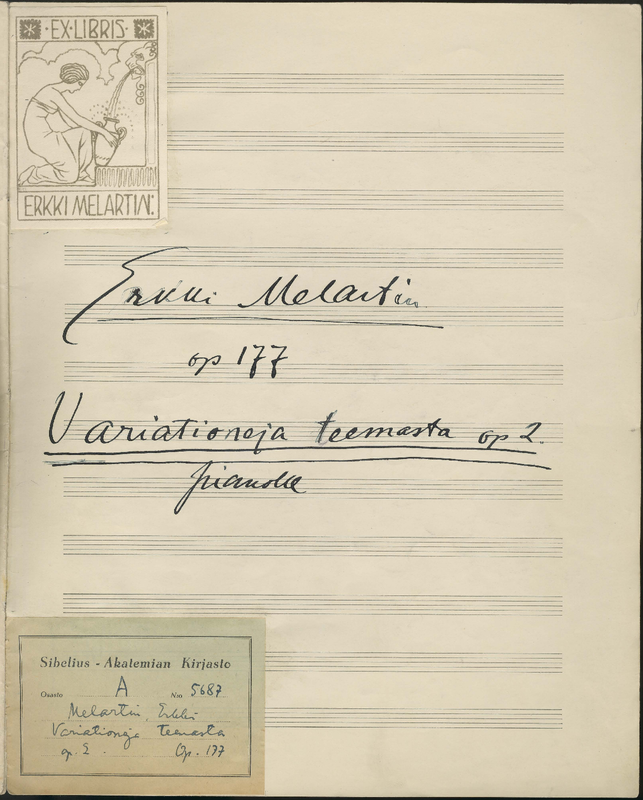 EX·LIBRIS
ERKKI MELARTIN
Erkki Melartin
op 177
Variationeja teemasta op 2.
pianolle
Sibelius - Akatemian Kirjasto
Osasto A N:o 5687
Melartin, Erkki
Variationeja teemasta
op. 2. Op. 177